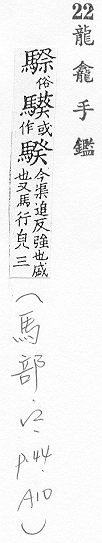 22 龍龕手鑑
騤俗騤或作騤今渠追反強也盛也又馬行皃三
(馬部.平.p.44.A10)